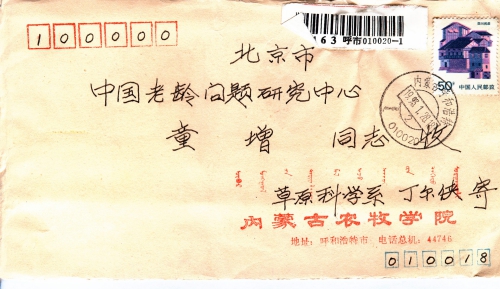 100000
163 呼市010020-1
50分 中国人民邮政
北京市
中国老龄问题研究中心
童增 同志 收
内蒙古 呼和浩特
010020
草原科学系 丁尔侠 寄
内蒙古农牧学院
地址:呼和浩特市 电话总机:44746
010018